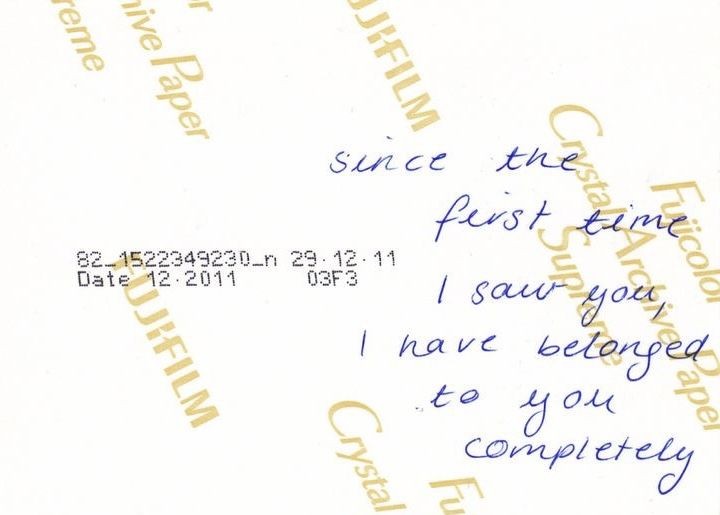 Supreme
Archive Paper
FUJIFILM
Crystal Archive Paper
Supreme
Fujicolor
since the
first time
I saw you,
I have belonged
to you
completely
82_1522349230_n 29·12·11
Date 12·2011 03F3
FUJIFILM
Crystal